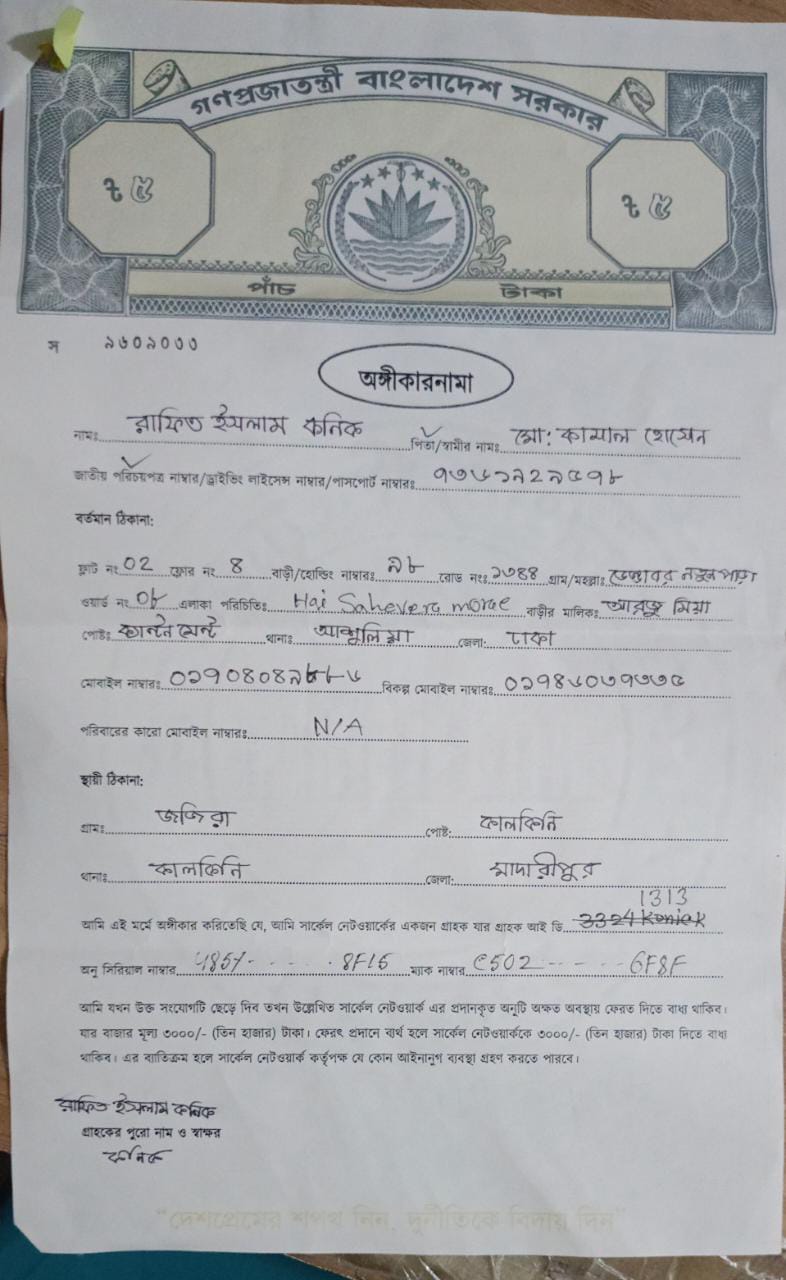 গণপ্রজাতন্ত্রী বাংলাদেশ সরকার
৳ ৫ ৳ ৫
পাঁচ টাকা
স ৯৬০৯০৩৩
অঙ্গীকারনামা
নামঃ রাফিত ইসলাম কনিক পিতা/স্বামীর নামঃ মো: কামাল হোসেন
জাতীয় পরিচয়পত্র নাম্বার/ড্রাইভিং লাইসেন্স নাম্বার/পাসপোর্ট নাম্বারঃ
বর্তমান ঠিকানা:
ফ্লাট নং 02 ফ্লোর নং 8 বাড়ী/হোল্ডিং নাম্বারঃ ৯৮ রোড নংঃ গ্রাম/মহল্লাঃ নতুন পাড়া
ওয়ার্ড নং 0৮ এলাকা পরিচিতিঃ Hai Sahevera more বাড়ীর মালিকঃ মিয়া
পোষ্টঃ থানাঃ আশুলিয়া জেলা: ঢাকা
মোবাইল নাম্বারঃ বিকল্প মোবাইল নাম্বারঃ
পরিবারের কারো মোবাইল নাম্বারঃ N/A
স্থায়ী ঠিকানা:
গ্রামঃ জজিরা পোষ্ট: কালকিনি
থানাঃ কালকিনি জেলা: মাদারীপুর
1313
আমি এই মর্মে অঙ্গীকার করিতেছি যে, আমি সার্কেল নেটওয়ার্কের একজন গ্রাহক যার গ্রাহক আই ডি 3324 Koniek
অনু সিরিয়াল নাম্বার 4857 8F15 ম্যাক নাম্বার C502 6F8F
আমি যখন উক্ত সংযোগটি ছেড়ে দিব তখন উল্লেখিত সার্কেল নেটওয়ার্ক এর প্রদানকৃত অনুটি অক্ষত অবস্থায় ফেরত দিতে বাধ্য থাকিব।
যার বাজার মূল্য ৩০০০/- (তিন হাজার) টাকা। ফেরৎ প্রদানে ব্যর্থ হলে সার্কেল নেটওয়ার্ককে ৩০০০/- (তিন হাজার) টাকা দিতে বাধ্য
থাকিব। এর ব্যতিক্রম হলে সার্কেল নেটওয়ার্ক কর্তৃপক্ষ যে কোন আইনানুগ ব্যবস্থা গ্রহণ করতে পারবে।
রাফিত ইসলাম কনিক
গ্রাহকের পুরো নাম ও স্বাক্ষর
কনিক
"দেশপ্রেমের শপথ নিন, দুর্নীতিকে বিদায় দিন"